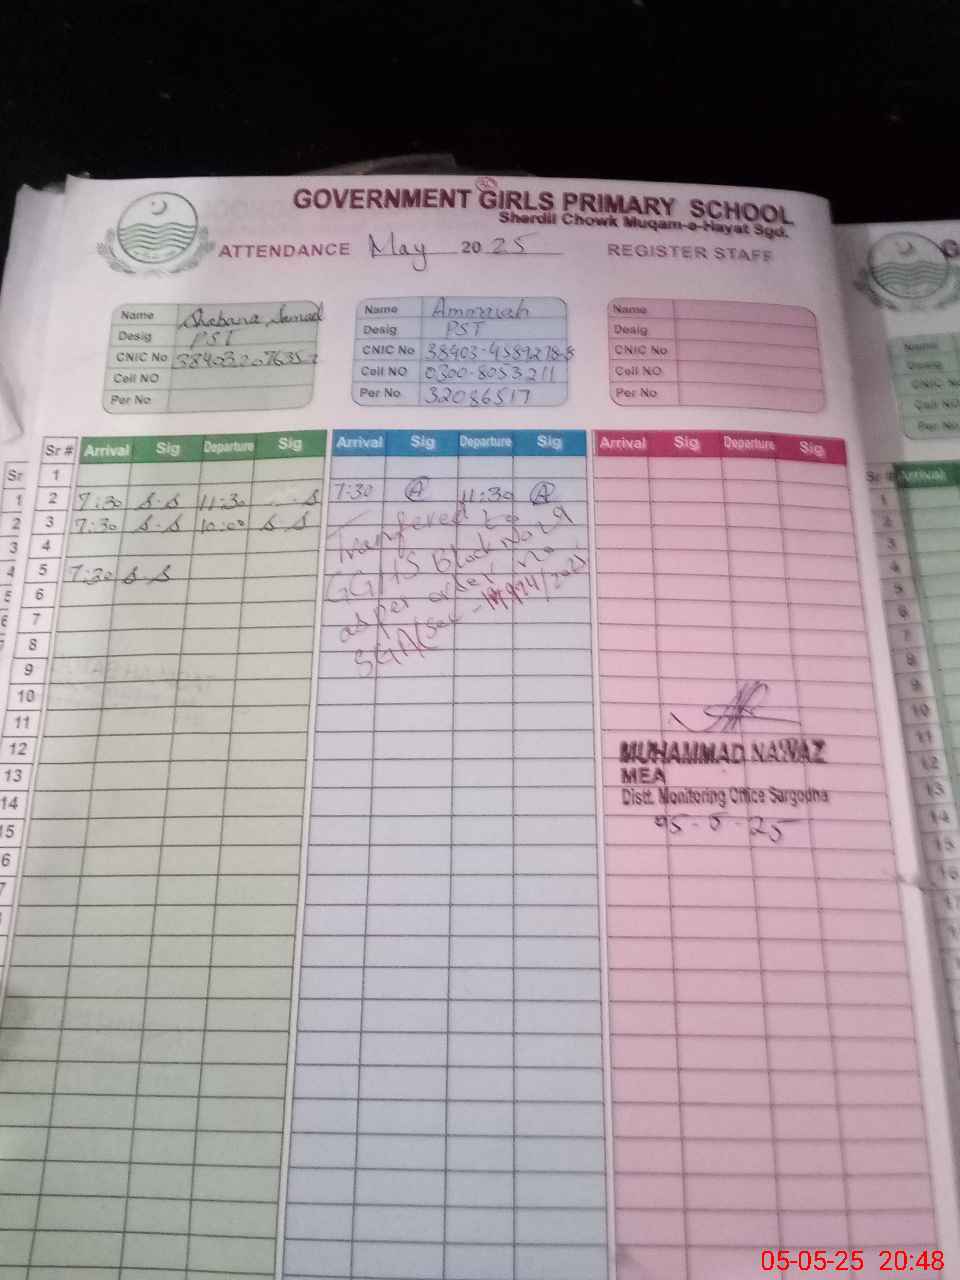 GOVERNMENT GIRLS PRIMARY SCHOOL
Sherdil Chowk Muqam-e-Hayat Sgd.
ATTENDANCE May 2025 REGISTER STAFF
Name Shabana Samad
Desig PST
CNIC No
Cell NO
Per No
Name Ammarah
Desig PST
CNIC No
Cell NO 0300-8053211
Per No 32086517
Name
Desig
CNIC No
Cell NO
Per No
Sr # Arrival Sig Departure Sig Arrival Sig Departure Sig Arrival Sig Departure Sig
1
2 7:30 S.S 11:30 S 7:30 A 11:30 A
3 7:30 S.S 10:00 S S
4
5 7:30 S S
6
7
8
9
10
11
12
13
14
15
Tranfered to
GGHS Block No
as per order no
MUHAMMAD NAWAZ
MEA
Distt. Monitoring Office Sargodha
05-5-25
Name
Desig
CNIC No
Cell NO
Per No
Sr # Arrival
1
2
3
4
5
6
7
8
9
10
11
12
13
14
15
16
05-05-25 20:48